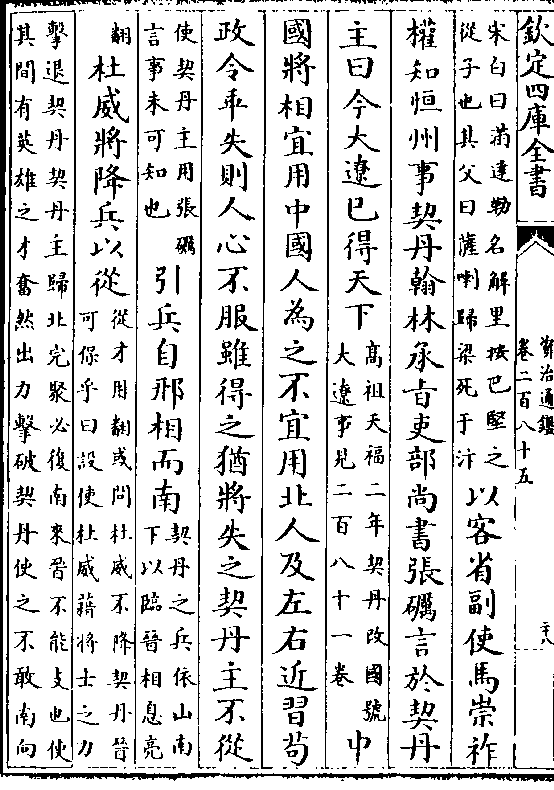 欽定四庫全書
資治通鑑
卷二百八十五
宋白曰滿達勒名解里按巴堅之
從子也其父曰薩喇歸梁死于汴
以客省副使馬崇祚
權知恒州事契丹翰林承旨吏部尚書張礪言於契丹
主曰今大遼已得天下
高祖天福二年契丹改國號
大遼事見二百八十一卷
中
國將相宜用中國人為之不宜用北人及左右近習苟
政令乖失則人心不服雖得之猶將失之契丹主不從
使契丹主用張礪
言事未可知也
引兵自邢相而南
契丹之兵依山南
下以臨晉相息亮
翻
杜威將降兵以從
從才用翻或問杜威不降契丹晉
可保乎曰設使杜威藉將士之力
擊退契丹契丹主歸北完聚必復南來晉不能支也使
其間有英雄之才奮然出力擊破契丹使之不敢南向